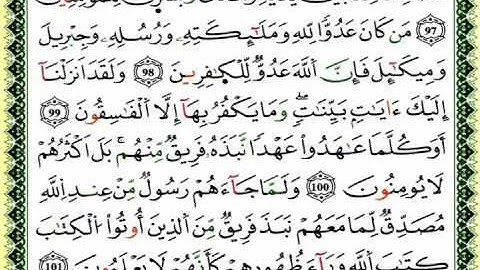 97 مَن كَانَ عَدُوًّا لِّلهِ وَمَلَٰٓئِكَتِهِۦ وَرُسُلِهِۦ وَجِبْرِيلَ
وَمِيكَٰٓئِلَ فَإِنَّ اَللَّهَ عَدُوٌّ لِّلْكٰفِرِينَ 98 وَلَقَدَ اَنزَلْنَآ
إِلَيْكَ ءَايَٰتِۭ بَيِّنَٰتٖ وَمَا يَكْفُرُ بِهَآ إِلَّا اَلْفَٰسِقُونَ 99
أَوَكُلَّمَا عَٰهَدُواْ عَهْداٗ نَّبَذَهُۥ فَرِيقٞ مِّنْهُم بَلَ اَكْثَرُهُمْ
لَا يُومِنُونَ 100 وَلَمَّا جَآءَهُمْ رَسُولٞ مِّنْ عِندِ اِللَّهِ
مُصَدِّقٞ لِّمَا مَعَهُمْ نَبَذَ فَرِيقٞ مِّنَ اَلذِينَ أُوتُواْ اُلْكِتَٰبَ
كِتَٰبَ اَللَّهِ وَرَآءَ ظُهُورِهِمْ كَأَنَّهُمْ لَا يَعْلَمُونَ 101